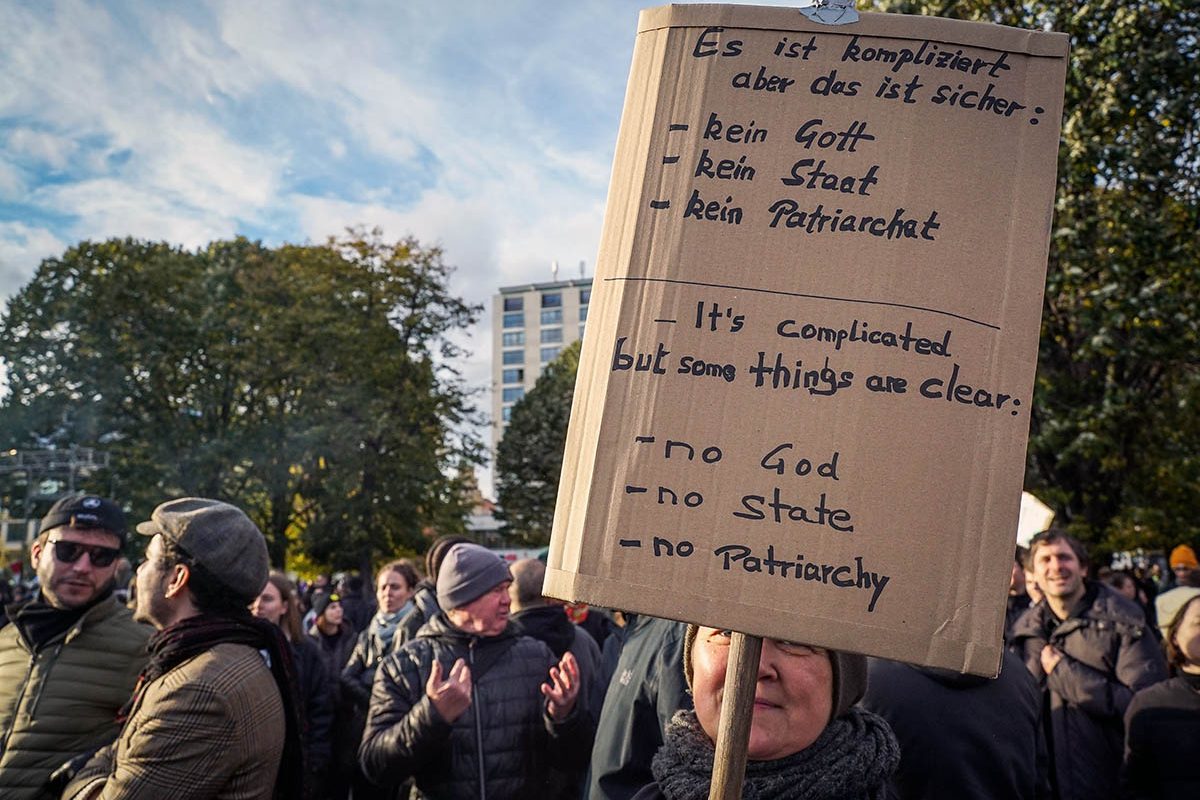 Es ist kompliziert
aber das ist sicher:
- kein Gott
- kein Staat
- kein Patriarchat
- It's complicated
but some things are clear:
- no God
- no State
- no Patriarchy